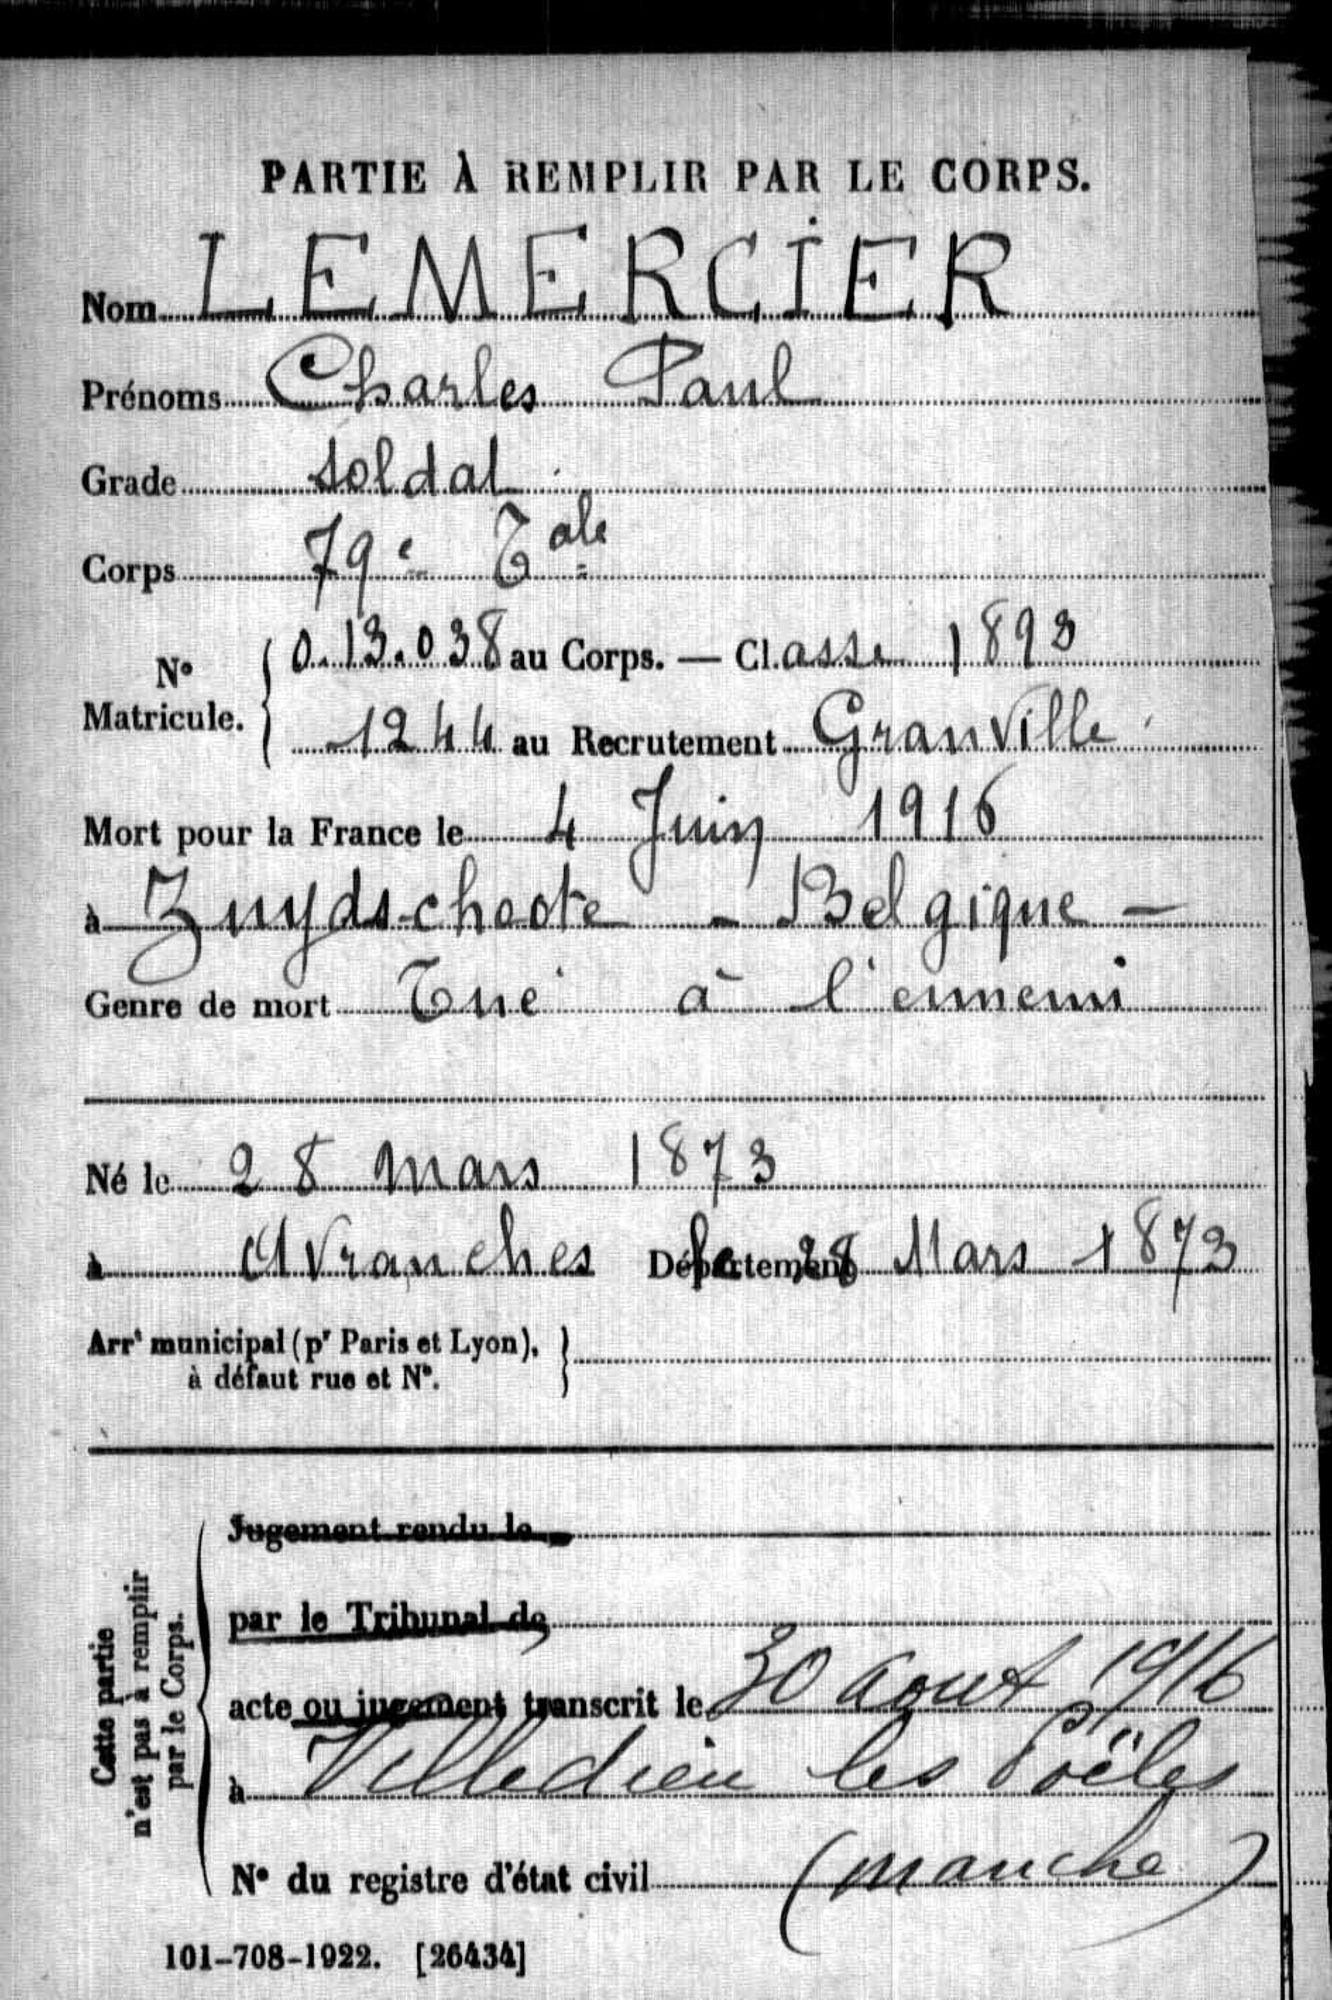 PARTIE À REMPLIR PAR LE CORPS.
Nom LEMERCIER
Prénoms Charles Paul
Grade soldat
Corps 79e Tale
No Matricule. { 0.13.038 au Corps. — Classe 1893
1244 au Recrutement Granville
Mort pour la France le 4 Juin 1916
à Zuydschoote - Belgique -
Genre de mort Tué à l'ennemi
Né le 28 mars 1873
à Avranches Département le 28 Mars 1873
Arrt municipal (pr Paris et Lyon), }
à défaut rue et No.
Cette partie
n'est pas à remplir
par le Corps.
Jugement rendu le
par le Tribunal de
acte ou jugement transcrit le 30 aout 1916
à Villedieu les Poëles
No du registre d'état civil (manche)
101-708-1922. [26434]